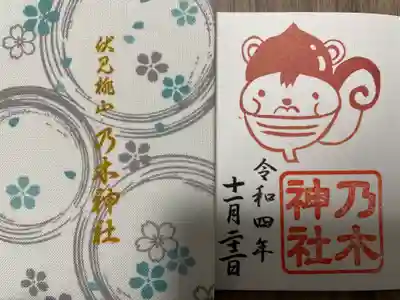 伏見桃山 乃木神社
令和四年
十一月 日
乃木
神社